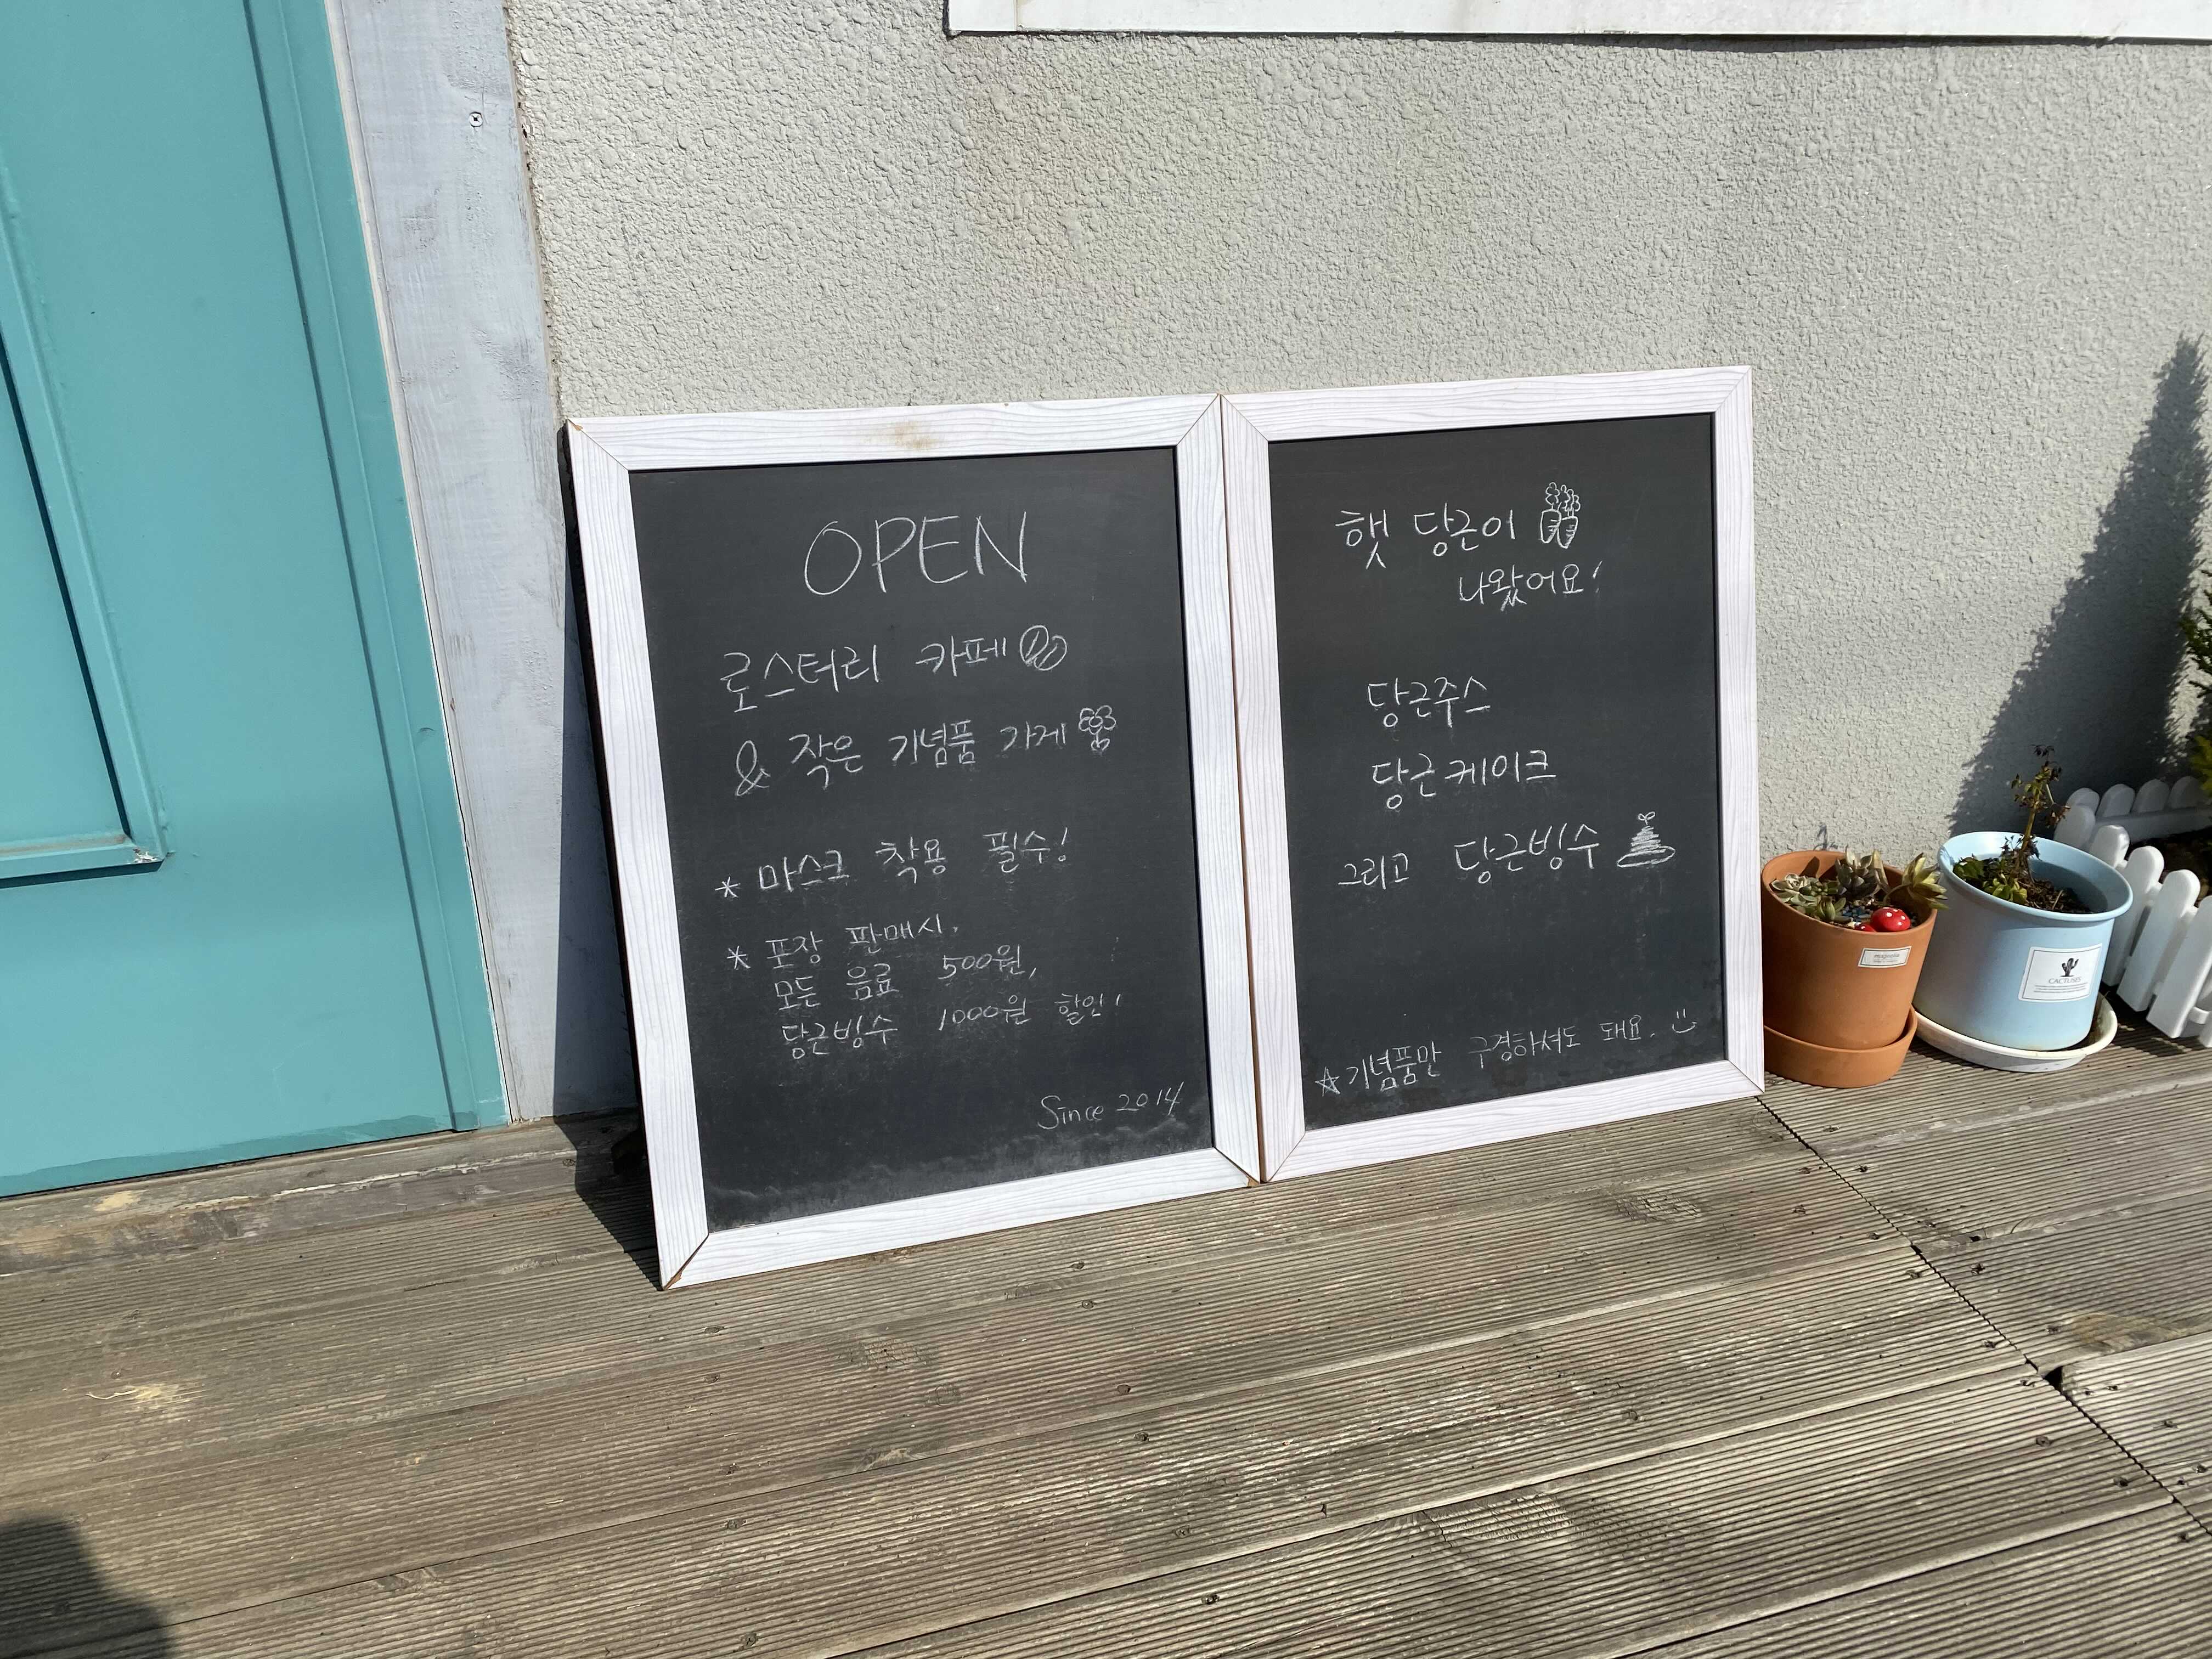 OPEN
로스터리 카페
& 작은 기념품 가게
* 마스크 착용 필수!
* 포장 판매시,
모든 음료 500원,
당근빙수 1000원 할인!
Since 2014
햇 당근이
나왔어요!
당근주스
당근케이크
그리고 당근빙수
☆기념품만 구경하셔도 돼요.
CACTUS